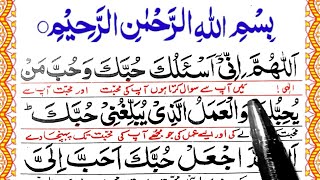 بِسْمِ اللهِ الرَّحْمٰنِ الرَّحِيْمِ
اَللّٰهُمَّ اِنِّيْ اَسْئَلُكَ حُبَّكَ وَحُبَّ مَنْ
الٰہی! میں آپ سے سوال کرتا ہوں آپ کی محبت اور محبت آپ سے
يُحِبُّكَ وَالْعَمَلَ الَّذِيْ يُبَلِّغُنِيْ حُبَّكَ
کی اور ایسے عمل کی جو مجھے آپ کی محبت تک پہنچا دے
اجْعَلْ حُبَّكَ اَحَبَّ اِلَيَّ